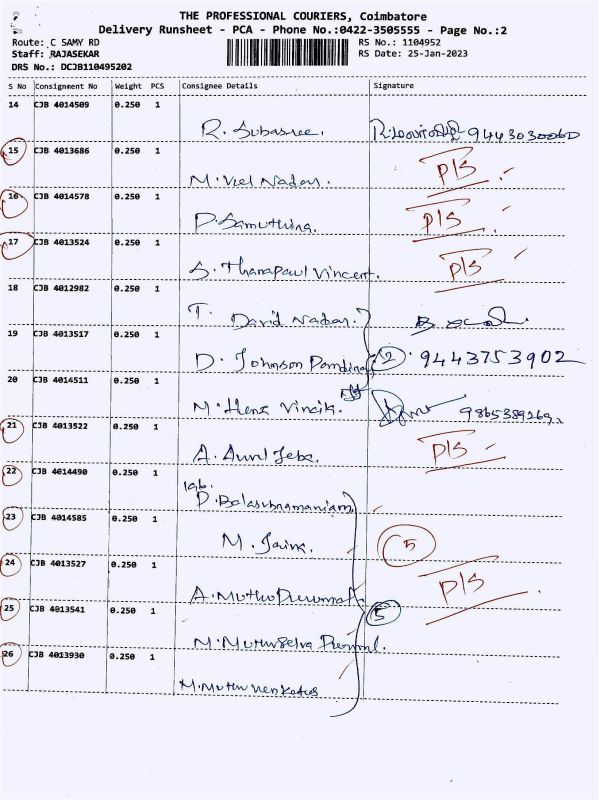 THE PROFESSIONAL COURIERS, Coimbatore
Delivery Runsheet - PCA - Phone No.:0422-3505555 - Page No.:2
Route: C SAMY RD
RS No.: 1104952
Staff: RAJASEKAR
RS Date: 25-Jan-2023
DRS No.: DCJB110495202
S No Consignment No Weight PCS Consignee Details Signature
14 CJB 4014509 0.250 1
R. Subasree.
15 CJB 4013686 0.250 1
M. Vel Nadar. P/S
16 CJB 4014578 0.250 1
P. Samuthira. P/S
17 CJB 4013524 0.250 1
S. Thanapaul Vincent. P/S
18 CJB 4012982 0.250 1
T. David Nadar.
19 CJB 4013517 0.250 1
D. Johnson 2 9443753902
20 CJB 4014511 0.250 1
M.
21 CJB 4013522 0.250 1
A. P/S
22 CJB 4014490 0.250 1
D. Balasubramaniam
23 CJB 4014585 0.250 1
M. 5
24 CJB 4013527 0.250 1
A. P/S
25 CJB 4013541 0.250 1
5
M.
26 CJB 4013930 0.250 1
M. Muthu